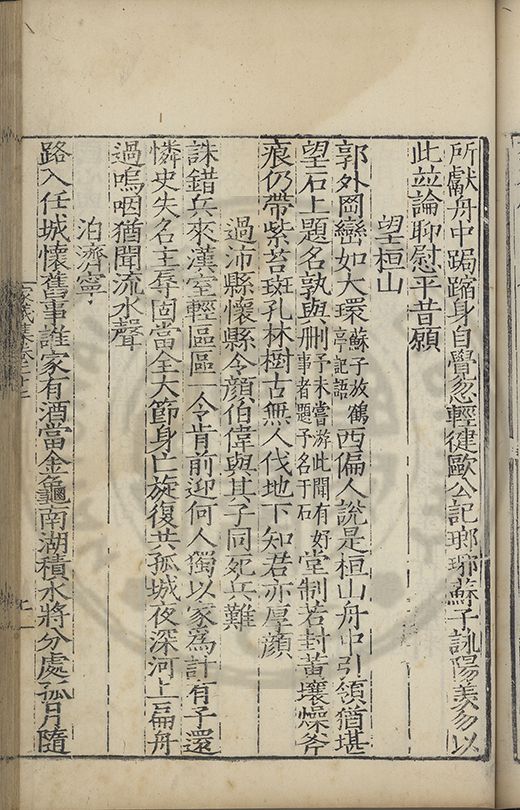 所獻舟中跼蹐身自覺忽輕健歐公記瑯琊蘇子詠陽羨勿以
此並論聊慰平昔願
望桓山
郭外岡巒如大環蘇子放鶴亭記語西偏人說是桓山舟中引領猶堪
望石上題名孰與刪予未嘗游此聞有好事者題予名于石堂制若封黃壤燥斧
痕仍帶紫苔斑孔林樹古無人伐地下知君亦厚顏
過沛縣懷縣令顏伯偉與其子同死兵難
誅錯兵來漢室輕區區一令肯前迎何人獨以家為計有子還
憐史失名主辱固當全大節身亡旋復共孤城夜深河上扁舟
過嗚咽猶聞流水聲
泊濟寧
路入任城懷舊事誰家有酒當金龜南湖積水將分處孤月隨